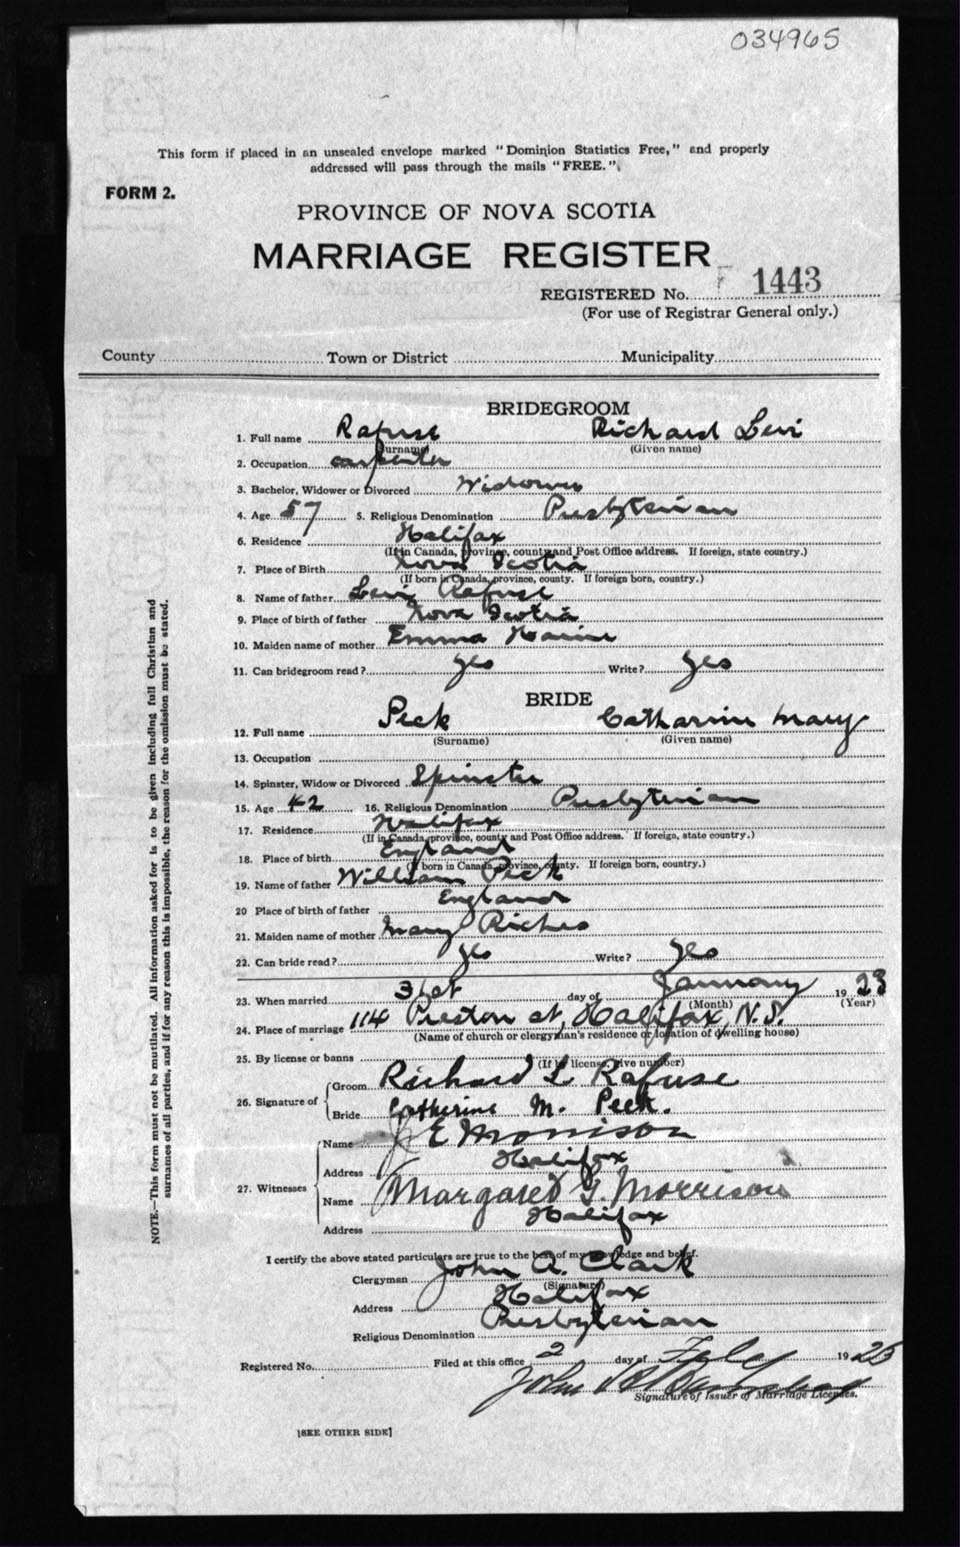 034965
This form if placed in an unsealed envelope marked "Dominion Statistics Free," and properly
addressed will pass through the mails "FREE."
FORM 2.
PROVINCE OF NOVA SCOTIA
MARRIAGE REGISTER
REGISTERED No. F 1443
(For use of Registrar General only.)
County Town or District Municipality
BRIDEGROOM
1. Full name Rafuse Richard Levi
(Surname) (Given name)
2. Occupation carpenter
3. Bachelor, Widower or Divorced Widower
4. Age 57 5. Religious Denomination Presbyterian
6. Residence Halifax
(If in Canada, province, county and Post Office address. If foreign, state country.)
7. Place of Birth Nova Scotia
(If born in Canada, province, county. If foreign born, country.)
8. Name of father Levi Rafuse
9. Place of birth of father Nova Scotia
10. Maiden name of mother Emma
11. Can bridegroom read? yes Write? yes
BRIDE
12. Full name Peck Catharine Mary
(Surname) (Given name)
13. Occupation
14. Spinster, Widow or Divorced Spinster
15. Age 42 16. Religious Denomination Presbyterian
17. Residence Halifax
(If in Canada, province, county and Post Office address. If foreign, state country.)
18. Place of birth England
(If born in Canada, province, county. If foreign born, country.)
19. Name of father William Peck
20 Place of birth of father England
21. Maiden name of mother Mary Riches
22. Can bride read? yes Write? yes
23. When married 31st day of January 1923
(Month) (Year)
24. Place of marriage 114 Preston st, Halifax, N.S.
(Name of church or clergyman's residence or location of dwelling house)
25. By license or banns
(If by license, give number)
26. Signature of Groom Richard L Rafuse
Bride Catherine M. Peck.
27. Witnesses Name J E Morrison
Address Halifax
Name Margaret G. Morrison
Address Halifax
I certify the above stated particulars are true to the best of my knowledge and belief.
Clergyman John A. Clark
(Signature)
Address Halifax
Religious Denomination Presbyterian
Registered No. Filed at this office 2 day of Feby 19
John
Signature of Issuer of Marriage Licenses.
[SEE OTHER SIDE]
NOTE.—This form must not be mutilated. All information asked for is to be given including full Christian and
surnames of all parties, and if for any reason this is impossible, the reason for the omission must be stated.